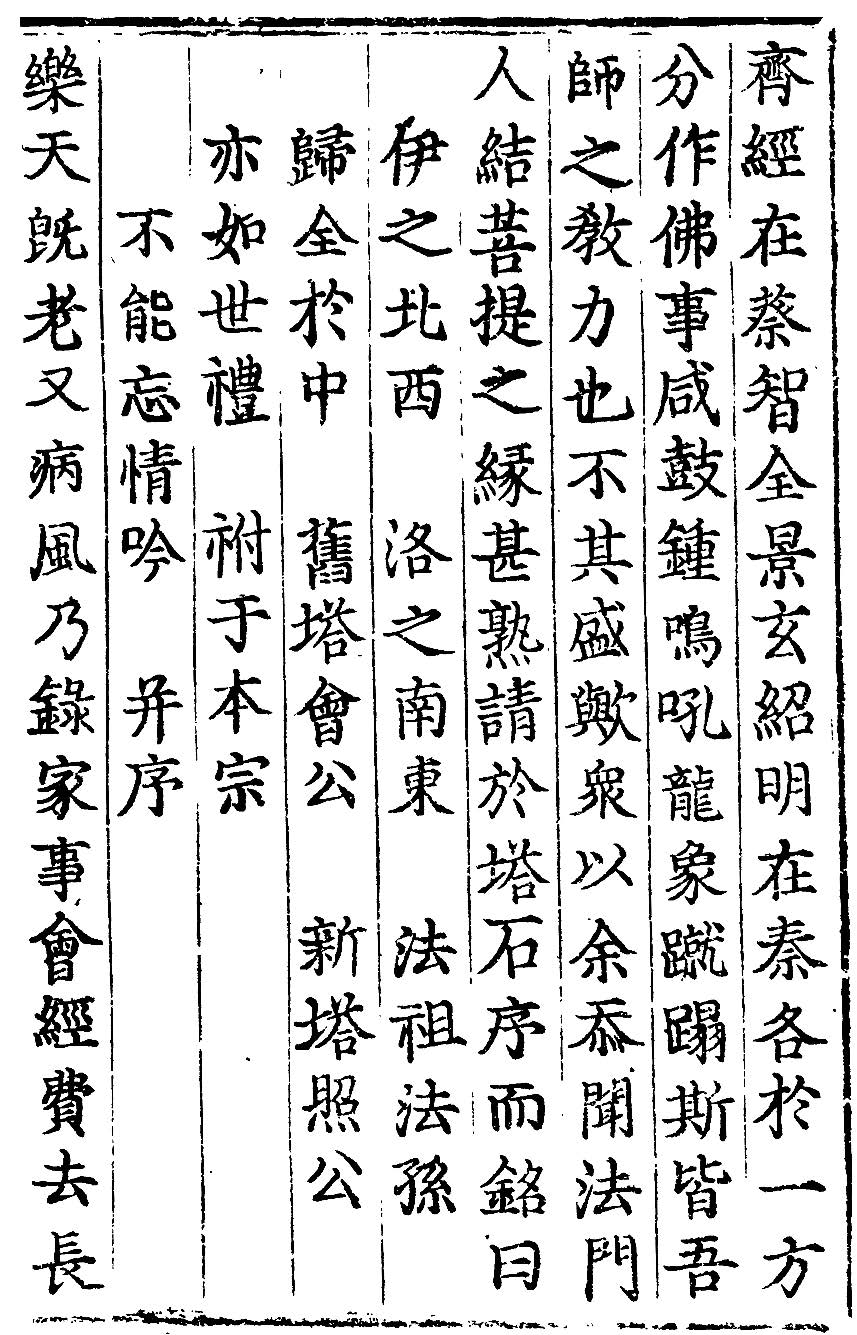 齊經在蔡智全景玄紹明在秦各於一方
分作佛事咸鼓鍾鳴吼龍象蹴蹋斯皆吾
師之教力也不其盛歟衆以余忝聞法門
人結菩提之緣甚熟請於塔石序而銘曰
伊之北西　洛之南東　法祖法孫
歸全於中　舊塔會公　新塔照公
亦如世禮　祔于本宗
不能忘情吟　并序
樂天旣老又病風乃錄家事會經費去長